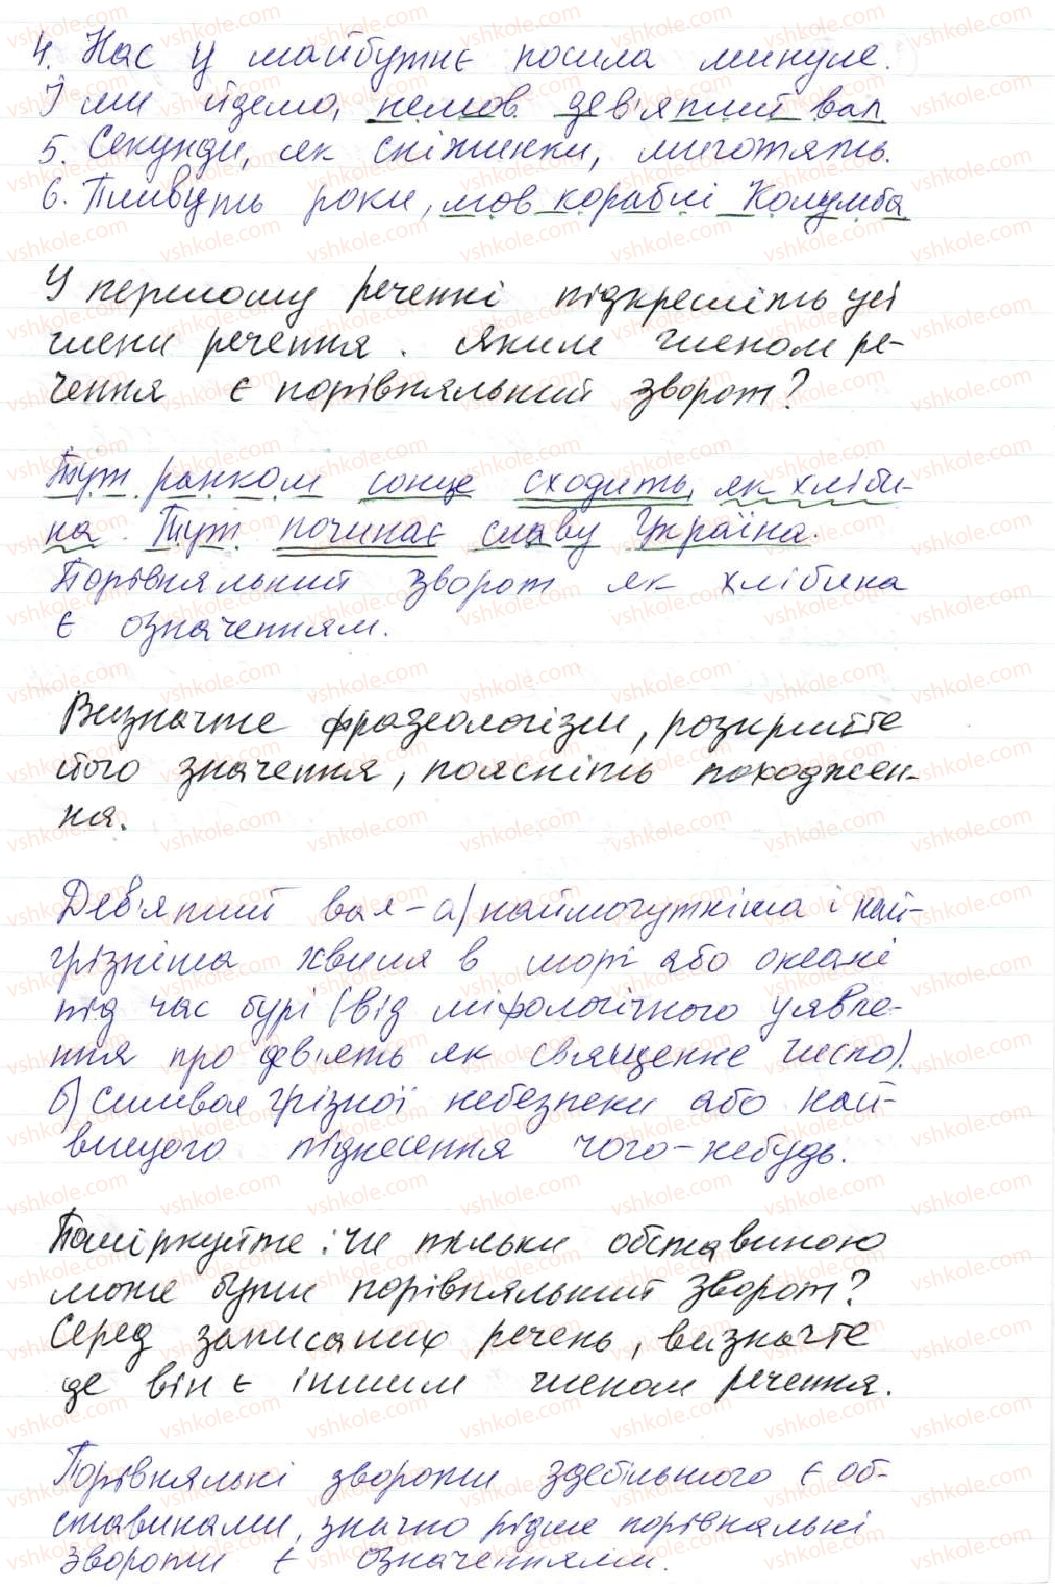 4. Нас у майбутнє посила минуле.
І ми йдемо, немов дев'ятий вал
5. Секунди, як сніжинки, миготять.
6. Пливуть роки, мов кораблі Колумба
У першому реченні підкресліть усі
члени речення. Яким членом ре-
чення є порівняльний зворот?
Тут ранком сонце сходить, як хліби-
на. Тут починає славу Україна.
Порівняльний зворот як хлібина
є означенням.
Визначте фразеологізм, розкрийте
його значення, поясніть походжен-
ня.
Дев'ятий вал - а) наймогутніша і най-
грізніша хвиля в морі або океані
під час бурі (від міфологічного уявле-
ння про дев'ять як священне число).
б) символ грізної небезпеки або най-
вищого піднесення чого-небудь.
Поміркуйте: чи тільки обставиною
може бути порівняльний зворот?
Серед записаних речень, визначте
де він є іншим членом речення.
Порівняльні звороти здебільшого є об-
ставинами, значно рідше порівняльні
звороти є означеннями.